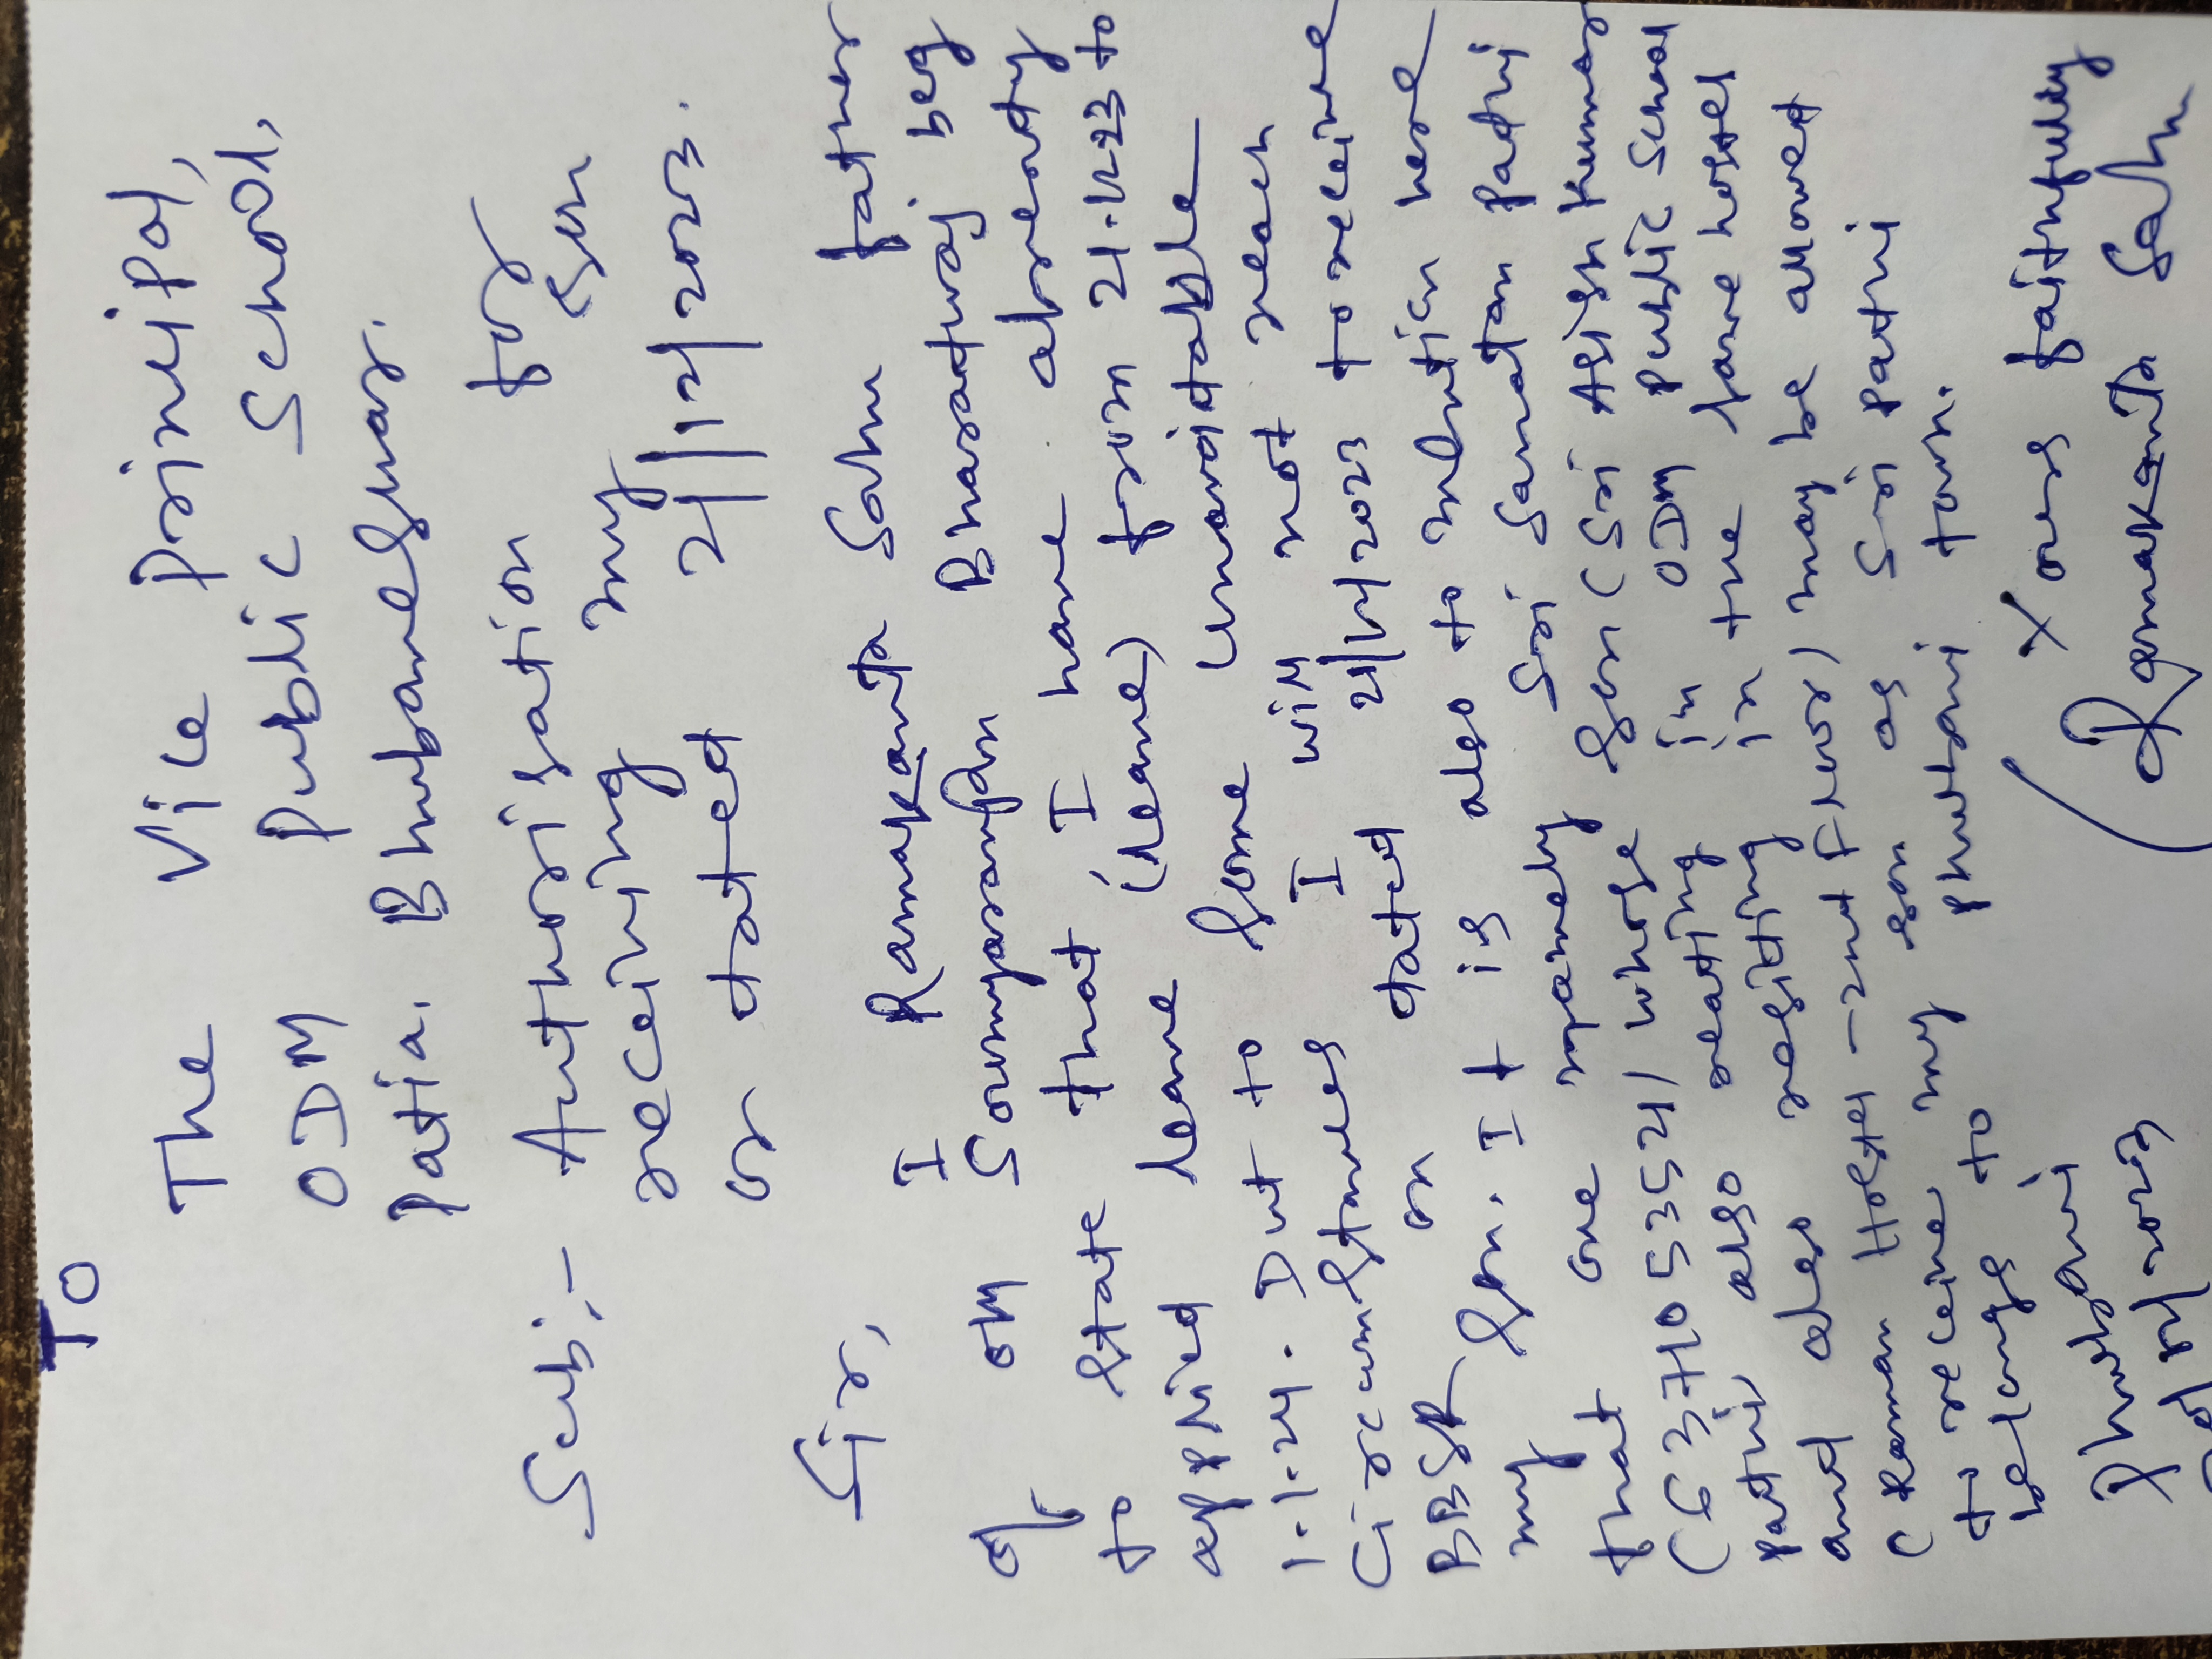 To
The Vice Principal,
ODM Public School,
Patia. Bhubaneswar.
Sub:- Authorisation for
receiving my son
on dated 21/12/2023.
Sir,
I Ramakanta Sahu father
of Om Soumyaranjan Bharatwaj beg
to state that I have already
applied leave (leave) from 21.12.23 to
1.1.24. Due to some unavoidable
Circumstances I will not reach
BBSR on dated 21/12/2023 to receive
my son. It is also to mention here
that one namely Sri Sanatan Patri
(6371053521) whose son (Sri Asish Kumar
Patri) also reading in ODM Public School
and also residing in the same hostel
(Raman Hostel -2nd Floor) may be allowed
to receive my son as Sri Patri
belongs to Phulbani town.
Phulbani
Yours faithfully
(Ramakanta Sahu